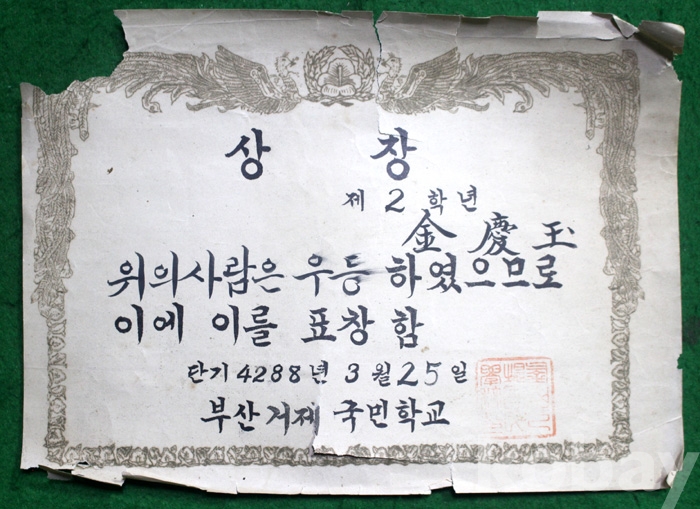 상 장
제 2 학년
金慶玉
위의사람은 우등 하였으므로
이에 이를 표창 함
단기 4288년 3월 25일
부산거제 국민학교